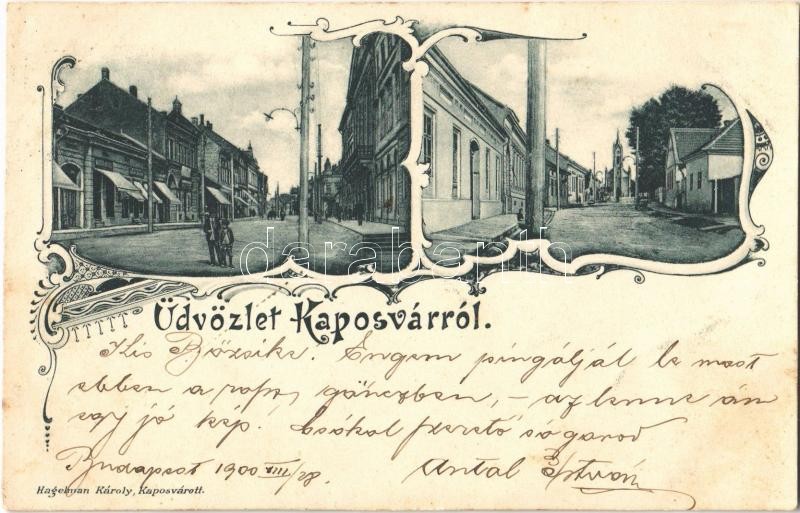 darabanth
Üdvözlet Kaposvárról.
Kis Bözsike. Engem pingáljál le most
ebben a ropp göncben, – az lenne ám
egy jó kép! Csókol szerető sógorod
Budapest 1900 VIII/28. Antal István
Hagelman Károly, Kaposvárott.